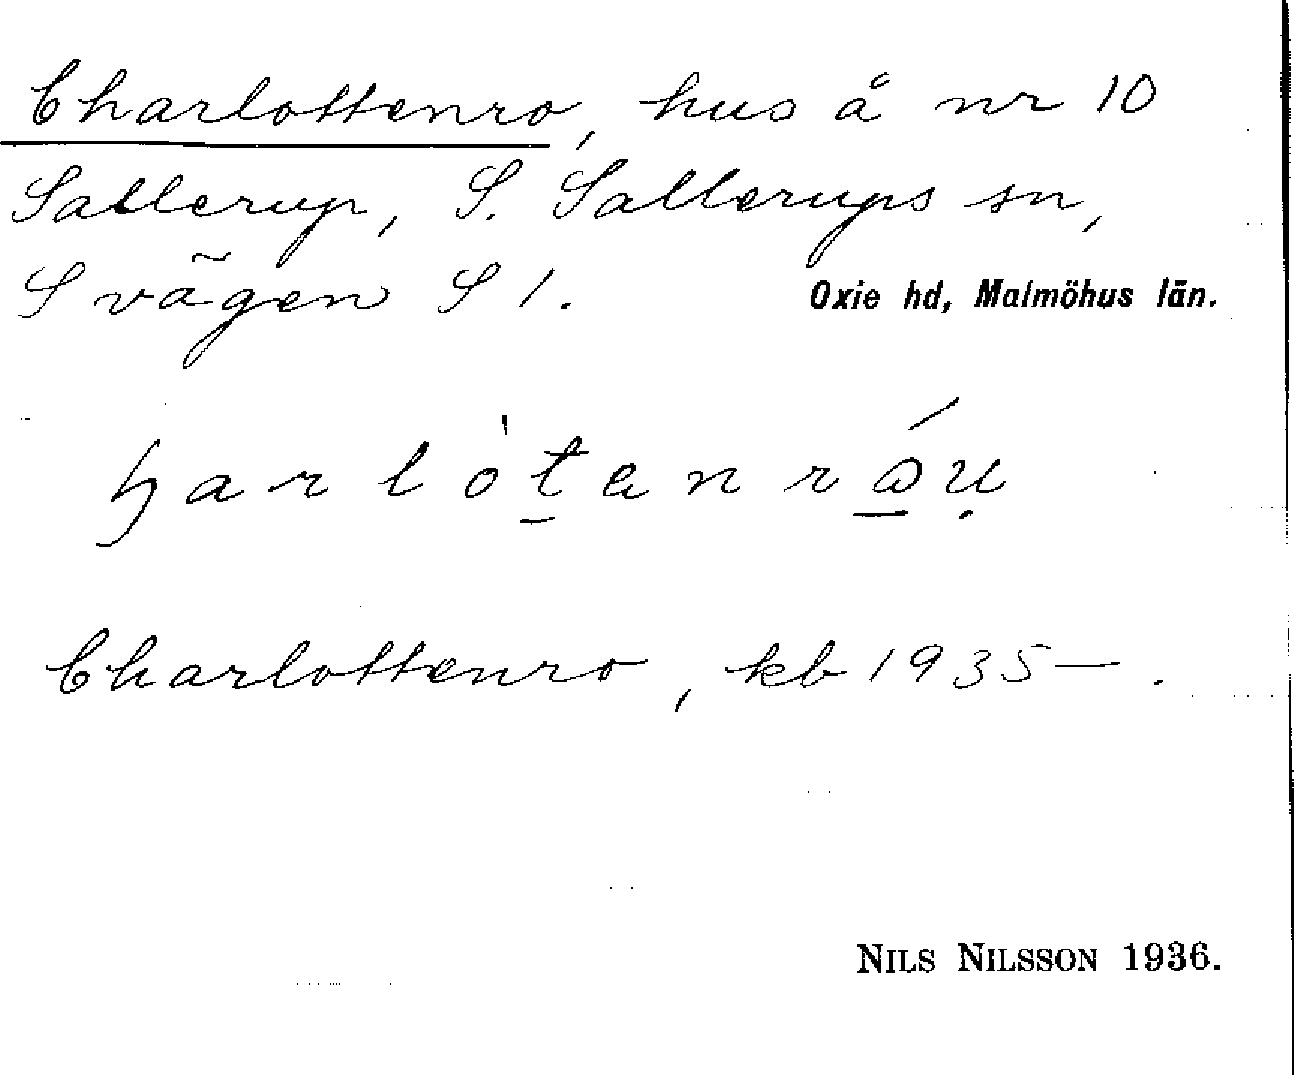 Charlottenro, hus å nr 10
Sallerup, S. Sallerups sn,
S vägen S 1. Oxie hd, Malmöhus län.
Charlottenro, kb 1935—.
NILS NILSSON 1936.